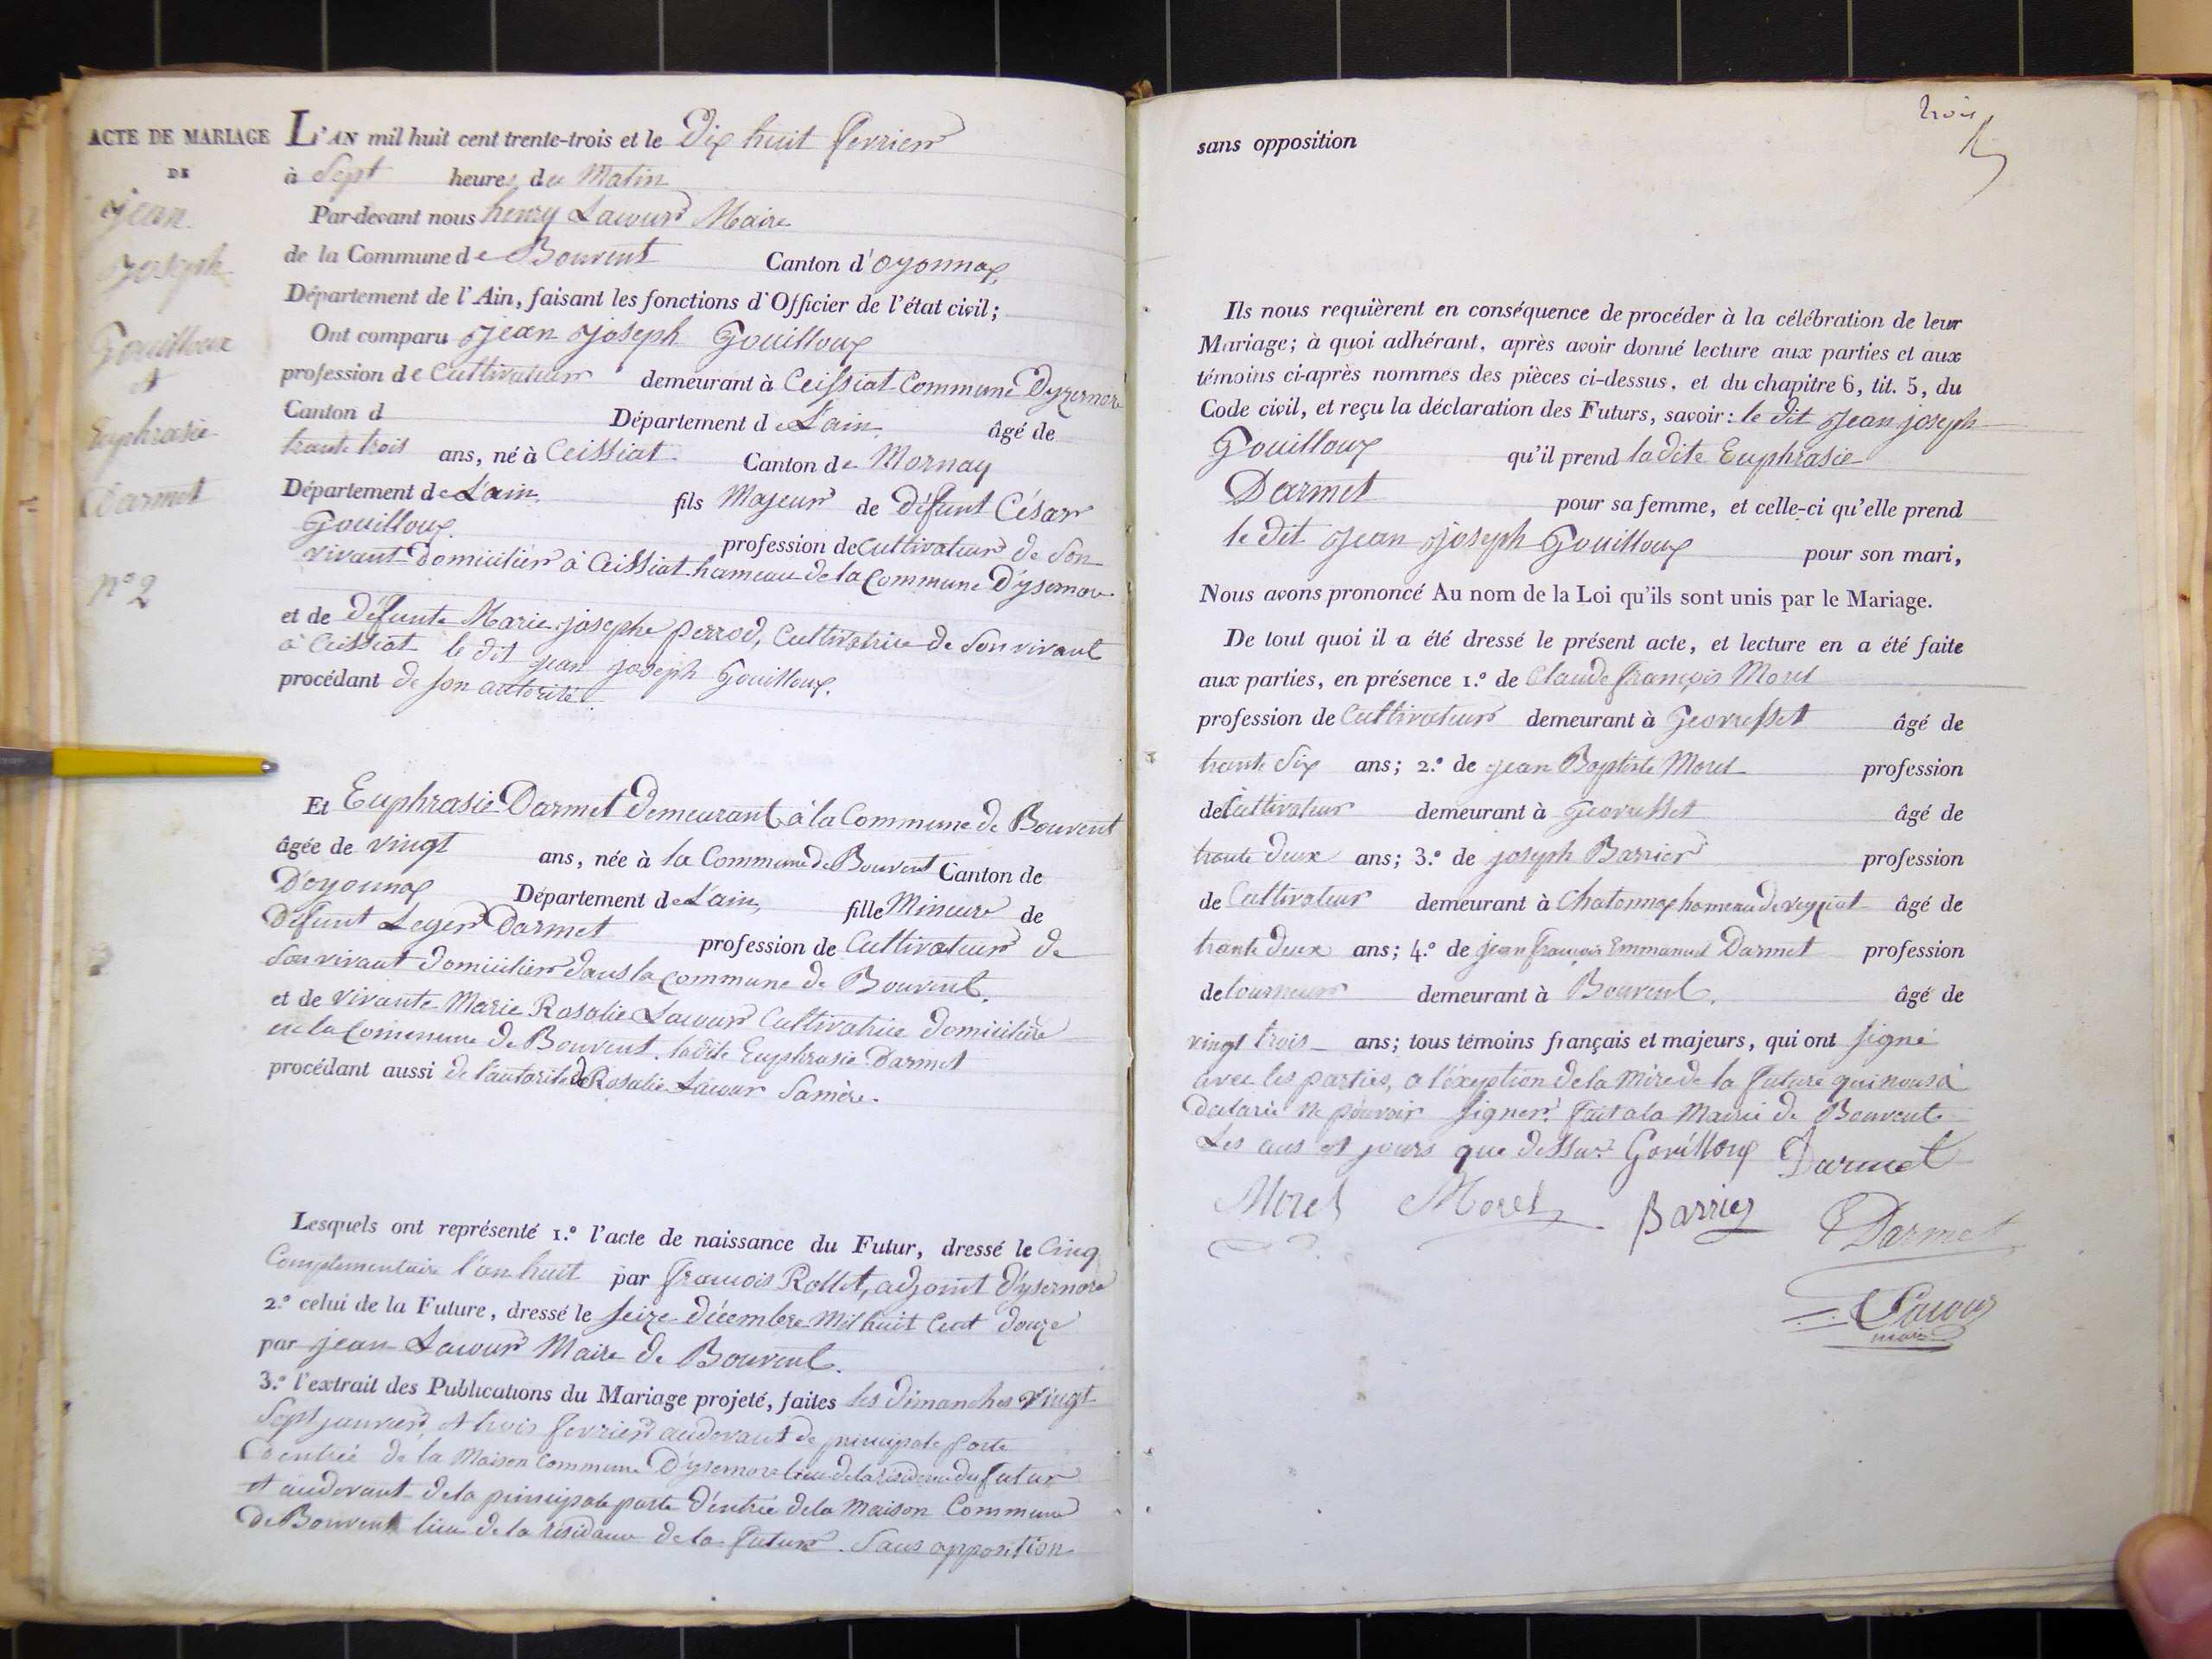 ACTE DE MARIAGE
DE
jean
joseph
Gouilloux
et
Euphrasie
Darmet
n.o 2
L'AN mil huit cent trente-trois et le Dix huit fevrier
à Sept heures du Matin
Par-devant nous henry Lacour Maire
de la Commune de Bouvent Canton d'oyonnax,
Département de l'Ain, faisant les fonctions d'Officier de l'état civil;
Ont comparu jean joseph Gouilloux
profession de Cultivateur demeurant à Ceissiat Commune Dyzernore
Canton d Département de L'ain, âgé de
trante trois ans, né à Ceissiat Canton de Mornay
Département de L'ain, fils Majeur de Défunt César
Gouilloux profession de Cultivateur de Son
vivant domicilier à Ceissiat hameau de la Commune D'ysernore
et de Défunte Marie josephe perrod, Cultivatrice de Son vivant
à Ceissiat le dit jean joseph Gouilloux.
procédant de son autorité
Et Euphrasie Darmet Demeurant à la Commune de Bouvent
âgée de vingt ans, née à la Commune de Bouvent Canton de
D'oyonnax Département de L'ain, fille Mineure de
Défunt Leger Darmet profession de Cultivateur de
Son vivant domicilier dans la commune de Bouvent.
et de vivante Marie Rosalie Lacour Cultivatrice domicilière
en la Commune de Bouvent. ladite Euphrasie Darmet
procédant aussi de l'autorité de Rosalie Lacour Samère.
Lesquels ont représenté 1.º l'acte de naissance du Futur, dressé le Cinq
Complementaire l'an huit par francois Rollet, adjoint d'ysernore
2.º celui de la Future, dressé le Seize décembre Mil huit Cent douze
par jean Lacour Maire de Bouvent.
3.º l'extrait des Publications du Mariage projeté, faites les dimanches vingt
Sept janvier et trois fevrier audevant de principale porte
D'entrée de la Maison Commune D'ysernore lieu de la résidence du futur
et audevant de la principale porte d'entrée de la Maison Commune
de Bouvent lieu de la résidance de la future. Sans opposition
trois
sans opposition
Ils nous requièrent en conséquence de procéder à la célébration de leur
Mariage; à quoi adhérant, après avoir donné lecture aux parties et aux
témoins ci-après nommés des pièces ci-dessus, et du chapitre 6, tit. 5, du
Code civil, et reçu la déclaration des Futurs, savoir: le dit jean joseph
Gouilloux qu'il prend ladite Euphrasie
Darmet pour sa femme, et celle-ci qu'elle prend
le dit jean joseph Gouilloux pour son mari,
Nous avons prononcé Au nom de la Loi qu'ils sont unis par le Mariage.
De tout quoi il a été dressé le présent acte, et lecture en a été faite
aux parties, en présence 1.º de Claude françois Morel
profession de Cultivateur demeurant à Geovresset âgé de
trante Six ans; 2.º de jean Baptiste Morel profession
de Cultivateur demeurant à Geovresset âgé de
trante deux ans; 3.º de joseph Barrier profession
de Cultivateur demeurant à Chatonnax hameau de veyziat âgé de
trante deux ans; 4.º de jean françois Emmanuel Darmet profession
de tourneur demeurant à Bouvent. âgé de
vingt trois ans; tous témoins français et majeurs, qui ont signé
avec les parties, a l'exeption de la Mère de la future qui nous à
déclarié ne pouvoir signer. fait a la Mairie de Bouvent
Les ans et jours que dessus. Gouilloux Darmet
Morel Morel Barrier Darmet
Lacour
maire